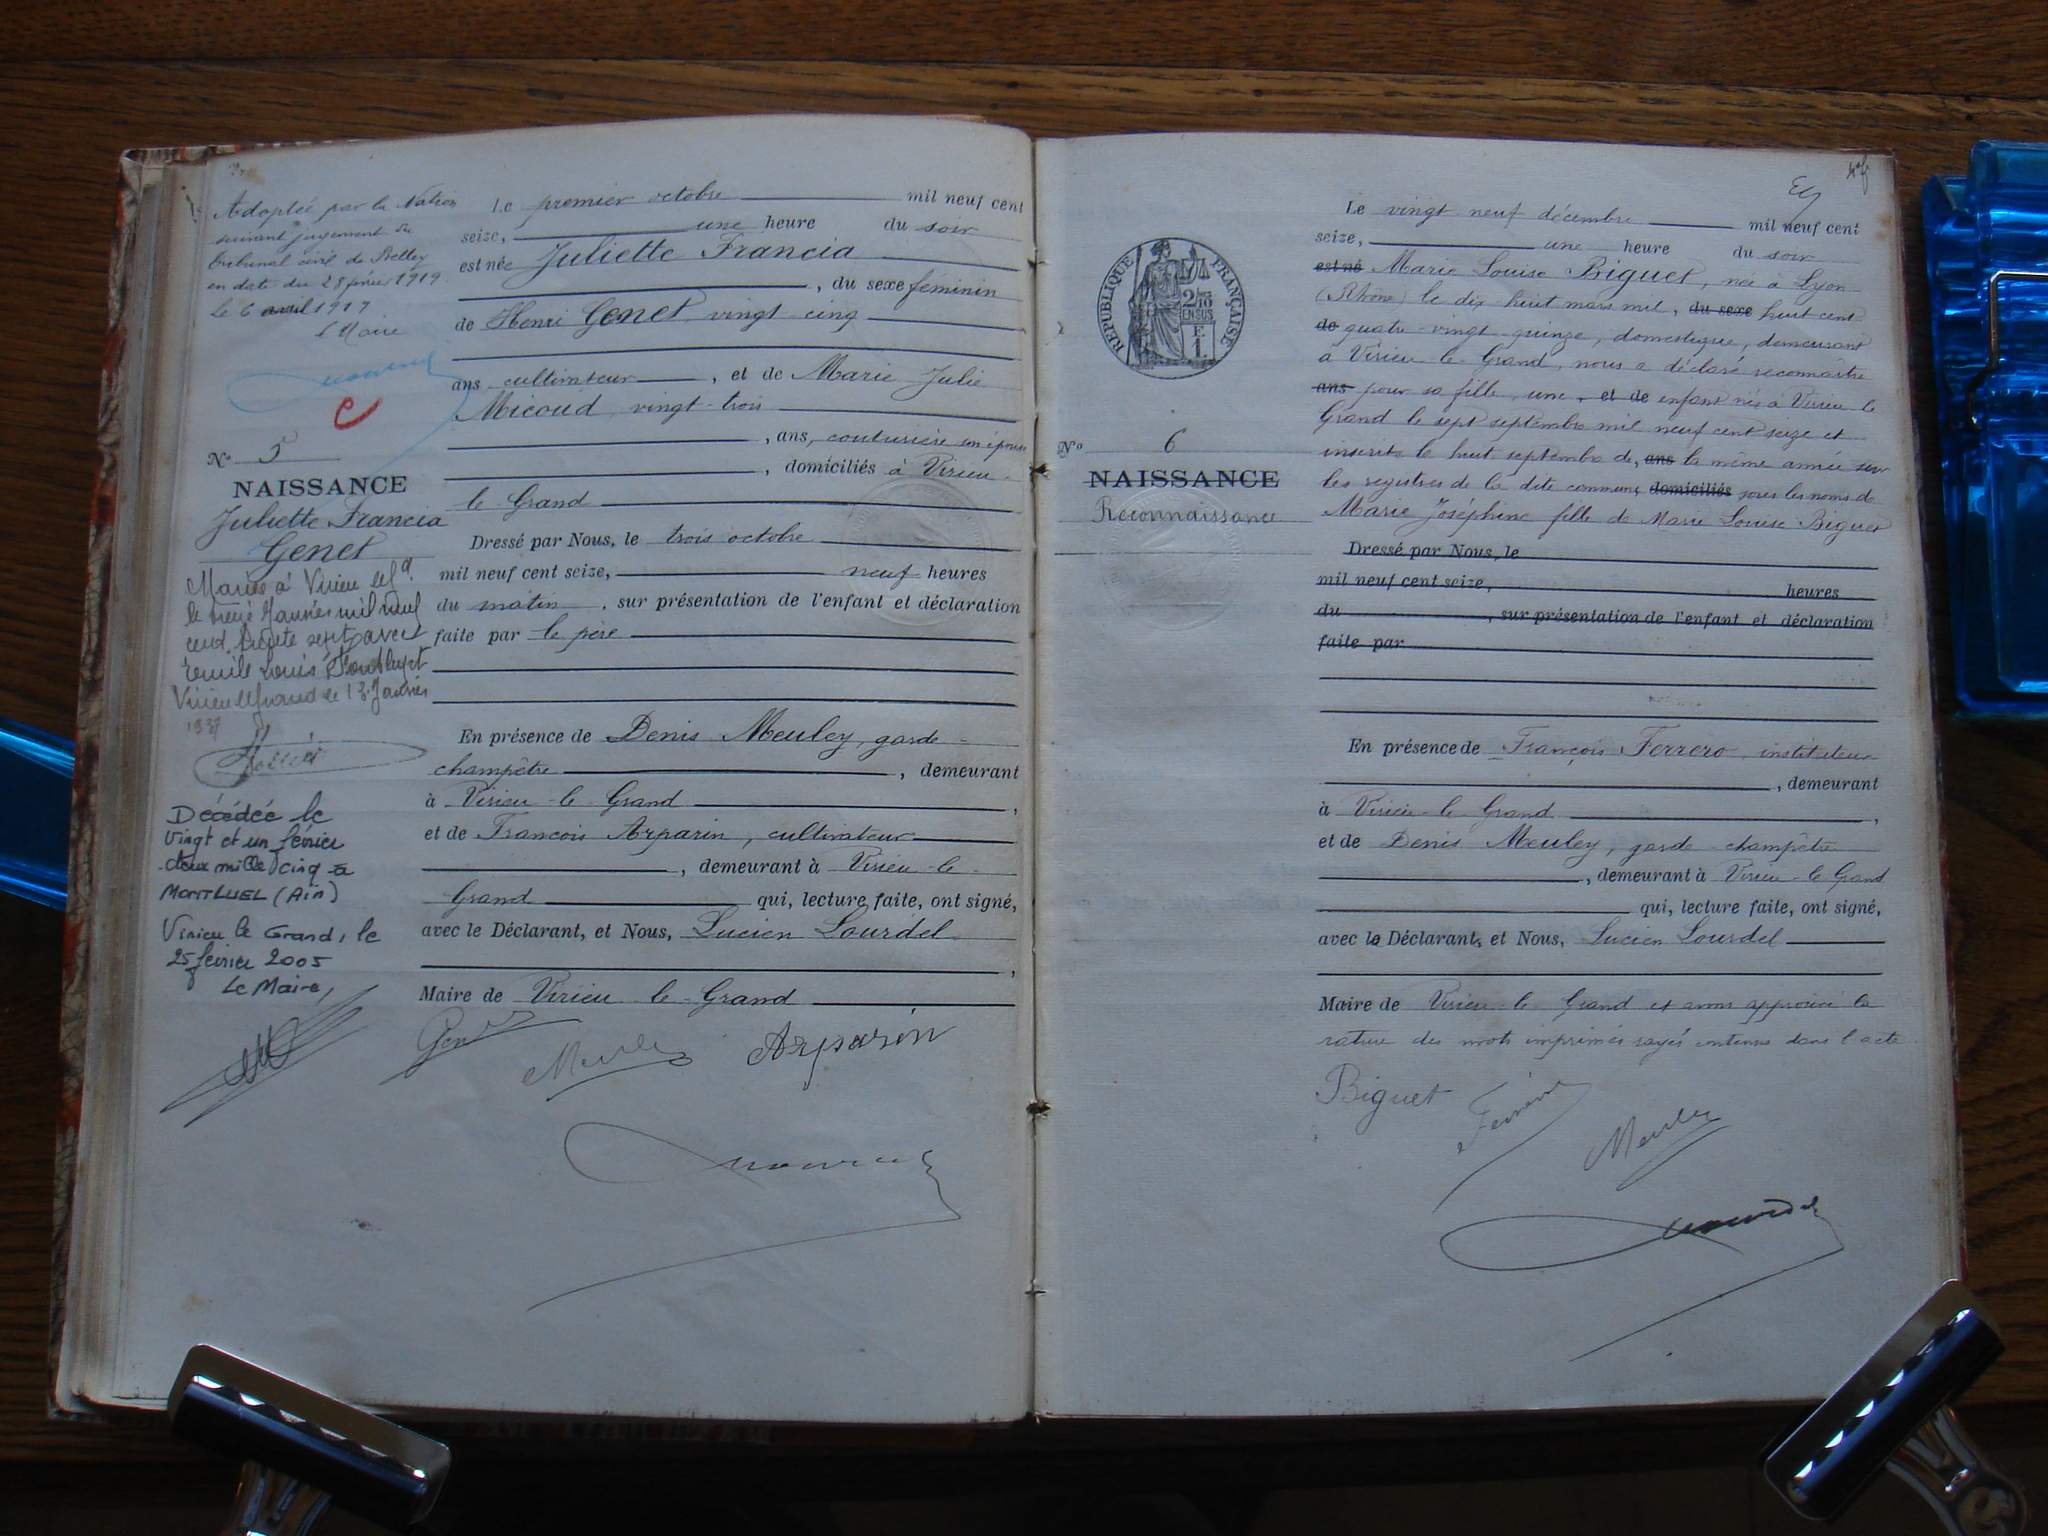 Adoptée par la Nation
suivant jugement du
tribunal civil de Belley
en date du 28 1919
Le 6 avril 1919
Maire
N° 5
NAISSANCE
Juliette Francia
Genet
Mariée à Virieu le Gd
le treize Janvier mil neuf
cent trente sept avec
Emile Louis
Virieu le Grand le 13 Janvier
1937
Décédée le
vingt et un février
deux mille cinq à
MONTLUEL (Ain)
Virieu le Grand, le
25 février 2005
Le Maire,
Le premier octobre mil neuf cent
seize, une heure du soir
est née Juliette Francia
, du sexe féminin
de Henri Genet vingt cinq
ans cultivateur, et de Marie Julie
Micoud vingt-trois
, ans, couturière son épouse
, domiciliés à Virieu-
le Grand
Dressé par Nous, le trois octobre
mil neuf cent seize, neuf heures
du matin, sur présentation de l'enfant et déclaration
faite par le père
En présence de Denis Meuley, garde-
champêtre, demeurant
à Virieu-le-Grand,
et de François Arparin, cultivateur
, demeurant à Virieu-le-
Grand qui, lecture faite, ont signé,
avec le Déclarant, et Nous, Lucien Lourdel
,
Maire de Virieu-le-Grand
Genet
Meuley
Arparin
RÉPUBLIQUE FRANÇAISE
N° 6
NAISSANCE
Reconnaissance
Le vingt neuf décembre mil neuf cent
seize, une heure du soir
est né Marie Louise Biguet, née à Lyon
(Rhône) le dix-huit mars mil, du sexe huit cent
de quatre-vingt-quinze, domestique, demeurant
à Virieu-le-Grand, nous a déclaré reconnaître
ans pour sa fille, une, et de enfant née à Virieu le
Grand le sept septembre mil neuf cent seize et
inscrite le huit septembre de, ans la même année sur
les registres de la dite commune domiciliés sous les noms de
Marie Joséphine fille de Marie Louise Biguet
Dressé par Nous, le
mil neuf cent seize, heures
du , sur présentation de l'enfant et déclaration
faite par
En présence de François Ferrero instituteur
, demeurant
à Virieu-le-Grand,
et de Denis Meuley, garde-champêtre
, demeurant à Virieu-le-Grand
qui, lecture faite, ont signé,
avec la Déclarante, et Nous, Lucien Lourdel
Maire de Virieu-le-Grand et avons approuvé la
rature des mots imprimés rayés contenus dans l'acte.
Biguet
Meuley